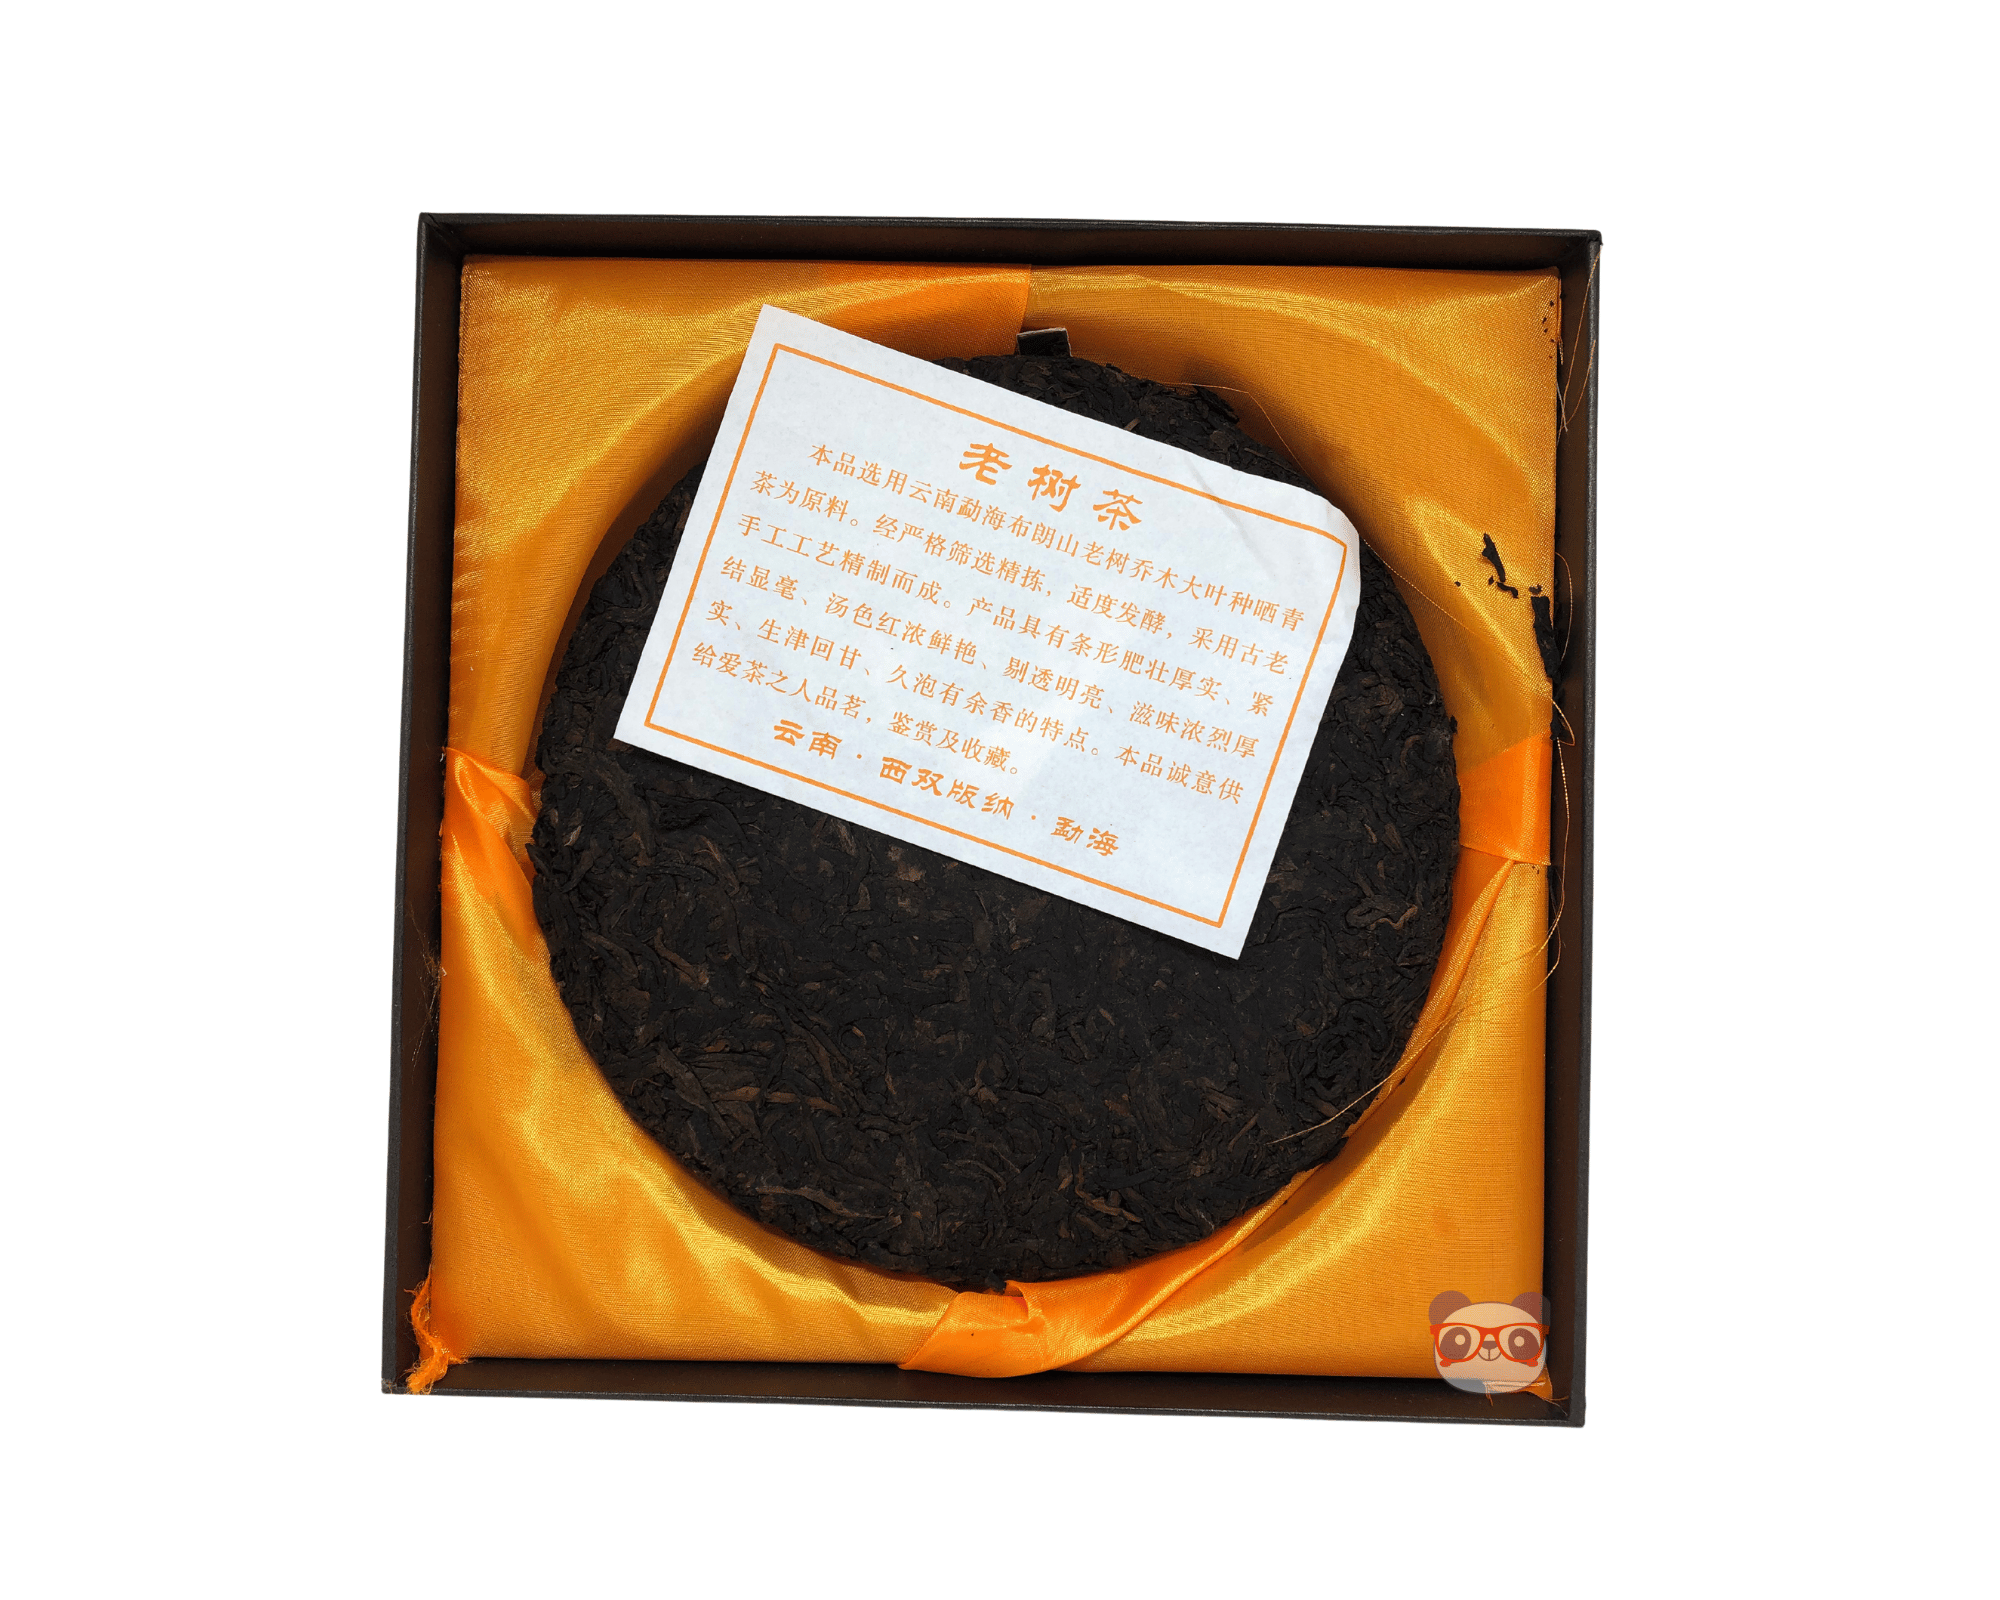 老树茶
本品选用云南勐海布朗山老树乔木大叶种晒青
茶为原料。经严格筛选精拣，适度发酵，采用古老
手工工艺精制而成。产品具有条形肥壮厚实、紧
结显毫、汤色红浓鲜艳、剔透明亮、滋味浓烈厚
实、生津回甘、久泡有余香的特点。本品诚意供
给爱茶之人品茗，鉴赏及收藏。
云南·西双版纳·勐海